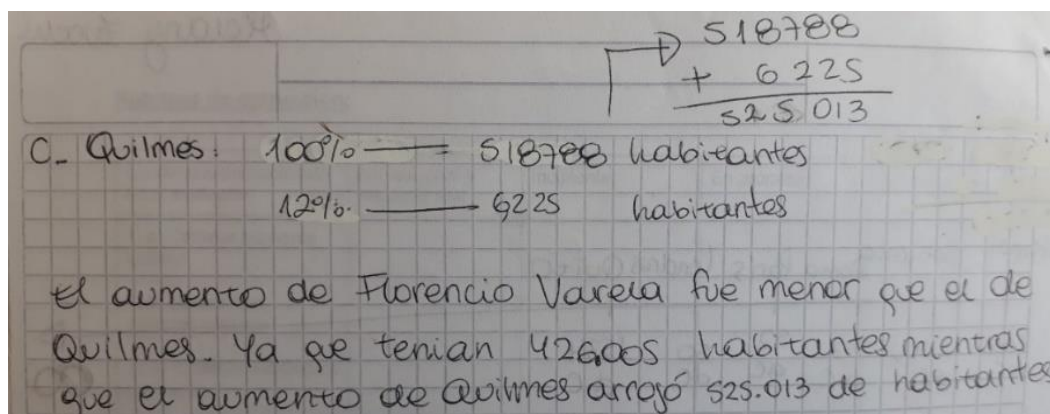 518788
+ 6225
525.013
C- Quilmes: 100% — 518788 habitantes
12% — 6225 habitantes
El aumento de Florencio Varela fue menor que el de
Quilmes. Ya que tenian 426.005 habitantes mientras
que el aumento de Quilmes arrojó 525.013 de habitantes